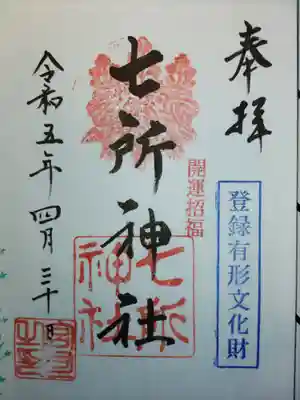 奉拝
登録有形文化財
開運招福
七所神社
七所神社
令和五年四月三十日